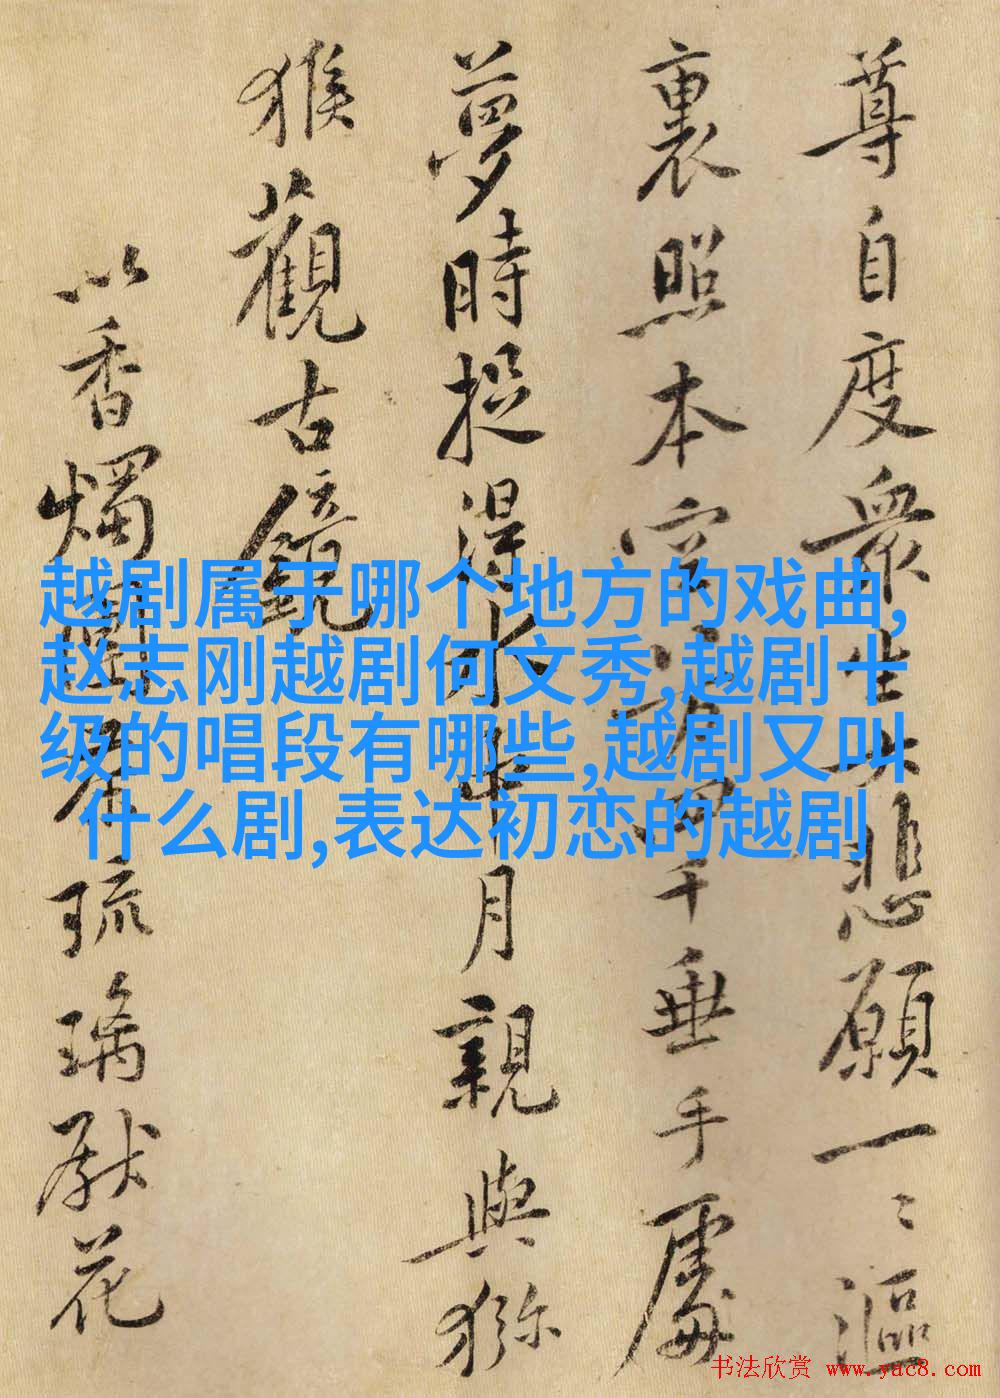 尊自度衆生大悲願一〻漚
裏照本空四千垂手處
夢時捉得水中月親與獼
猴觀古鏡
以香燭琉璃獻花
越剧属于哪个地方的戏曲,
赵志刚越剧何文秀,越剧十
级的唱段有哪些,越剧又叫
什么剧,表达初恋的越剧
书法欣赏 www.yac8.com